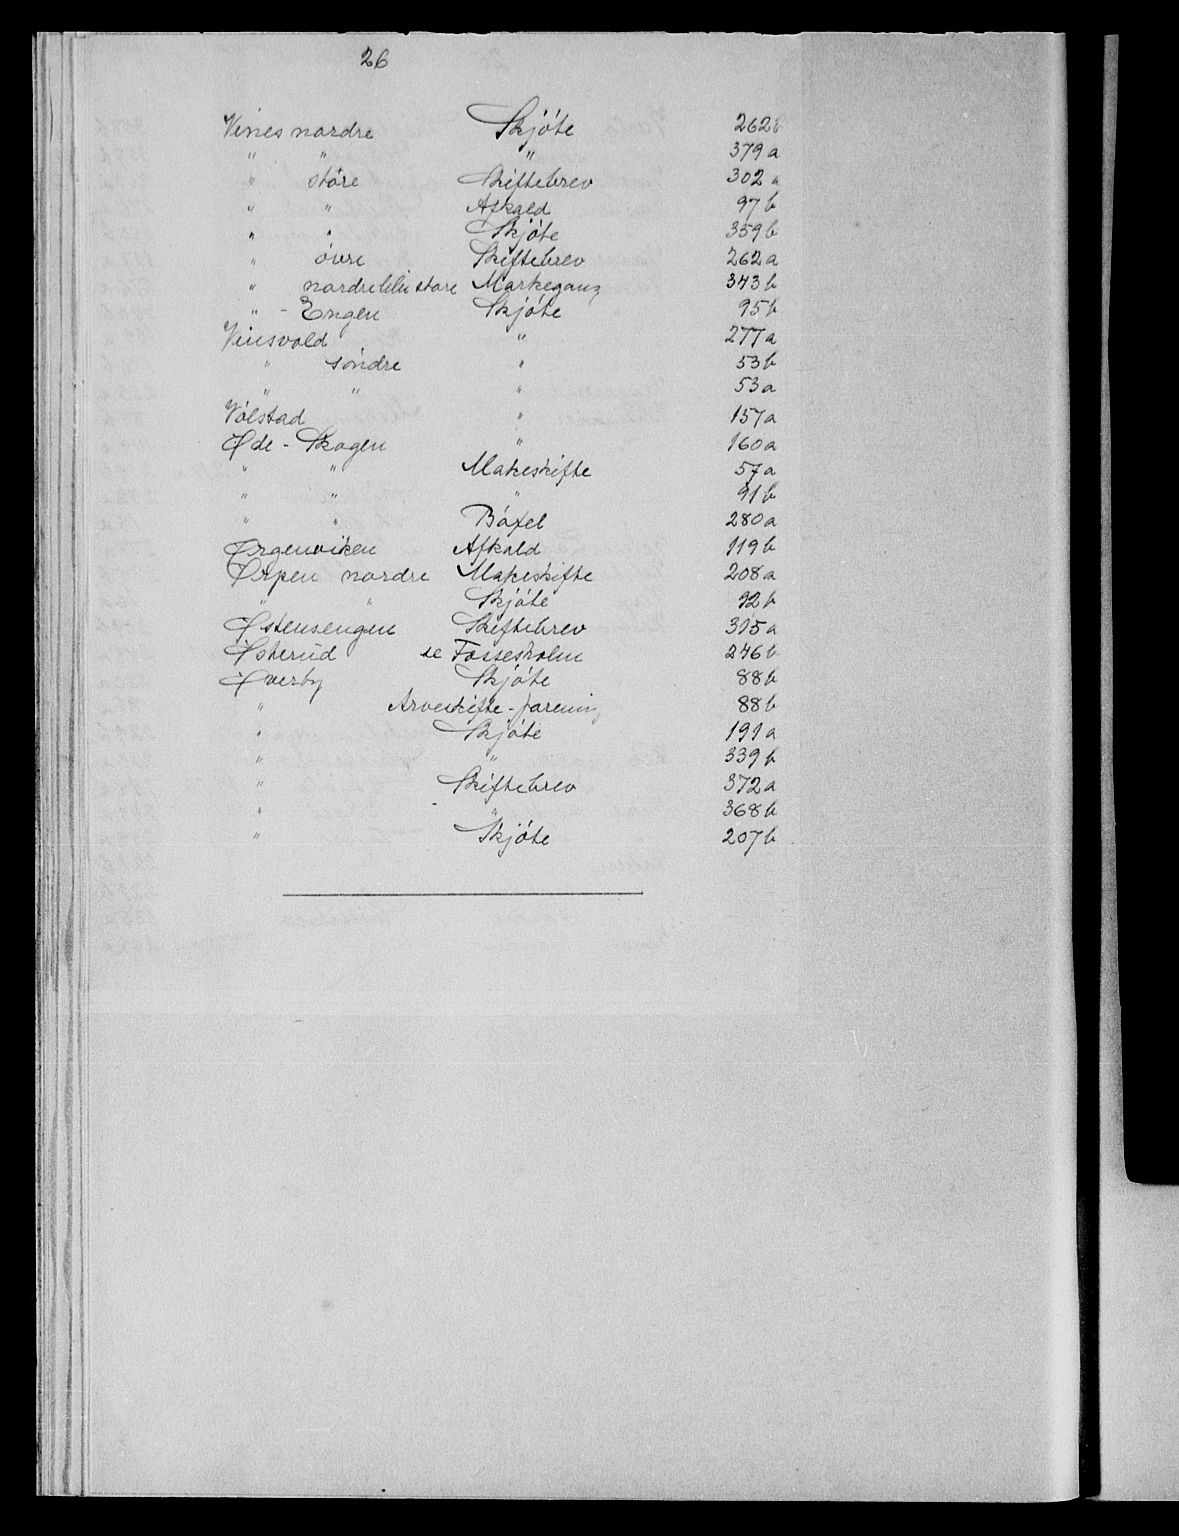 26
Vines nordre Skjöte 262b
" " " 379a
" störe Skiftebrev 302a
" " Afkald 97b
" " Skjöte 359b
" övre Skiftebrev 262a
" nordre lille store Markegang 343b
" - Engen Skjöte 95b
Vinsvold " 277a
" söndre " 53b
" " " 53a
Völstad " 157a
Øde - Skogen " 160a
" " Makeskifte 57a
" " " 91b
" " Böxel 280a
Ørgenviken Afkald 119b
Ørpen nordre Makeskifte 208a
" " Skjöte 92b
Østensengen Skiftebrev 315a
Østerud se Fossesholm 246b
Øverby Skjöte 88b
" Arveskifte-forening 88b
" Skjöte 191a
" " 339b
" Skiftebrev 372a
" " 368b
" Skjöte 207b